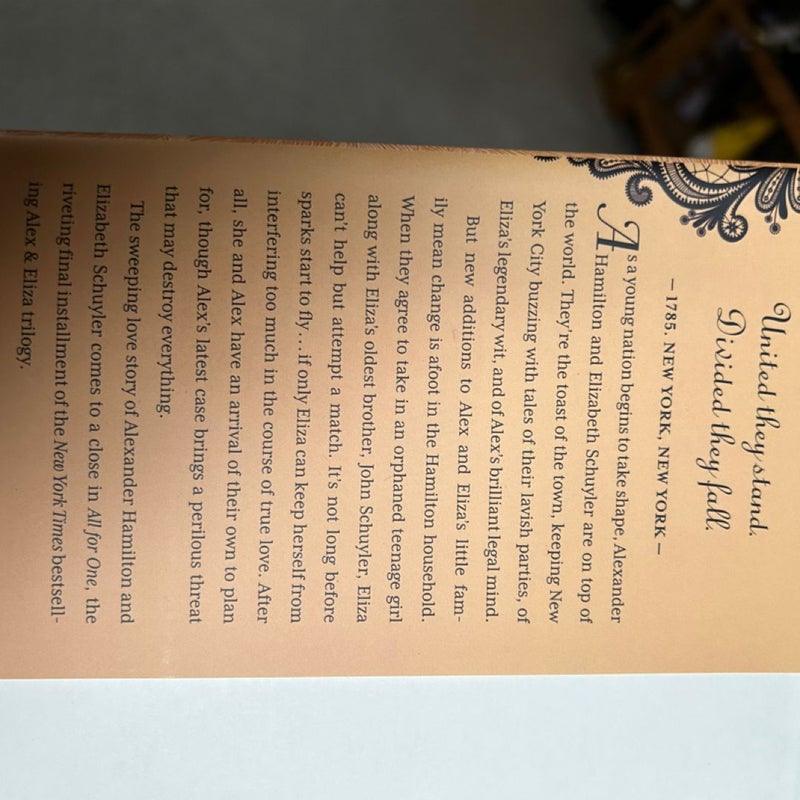 United they stand.
Divided they fall.
— 1785. NEW YORK, NEW YORK —
As a young nation begins to take shape, Alexander
Hamilton and Elizabeth Schuyler are on top of
the world. They're the toast of the town, keeping New
York City buzzing with tales of their lavish parties, of
Eliza's legendary wit, and of Alex's brilliant legal mind.
But new additions to Alex and Eliza's little fam-
ily mean change is afoot in the Hamilton household.
When they agree to take in an orphaned teenage girl
along with Eliza's oldest brother, John Schuyler, Eliza
can't help but attempt a match. It's not long before
sparks start to fly . . . if only Eliza can keep herself from
interfering too much in the course of true love. After
all, she and Alex have an arrival of their own to plan
for, though Alex's latest case brings a perilous threat
that may destroy everything.
The sweeping love story of Alexander Hamilton and
Elizabeth Schuyler comes to a close in All for One, the
riveting final installment of the New York Times bestsell-
ing Alex & Eliza trilogy.